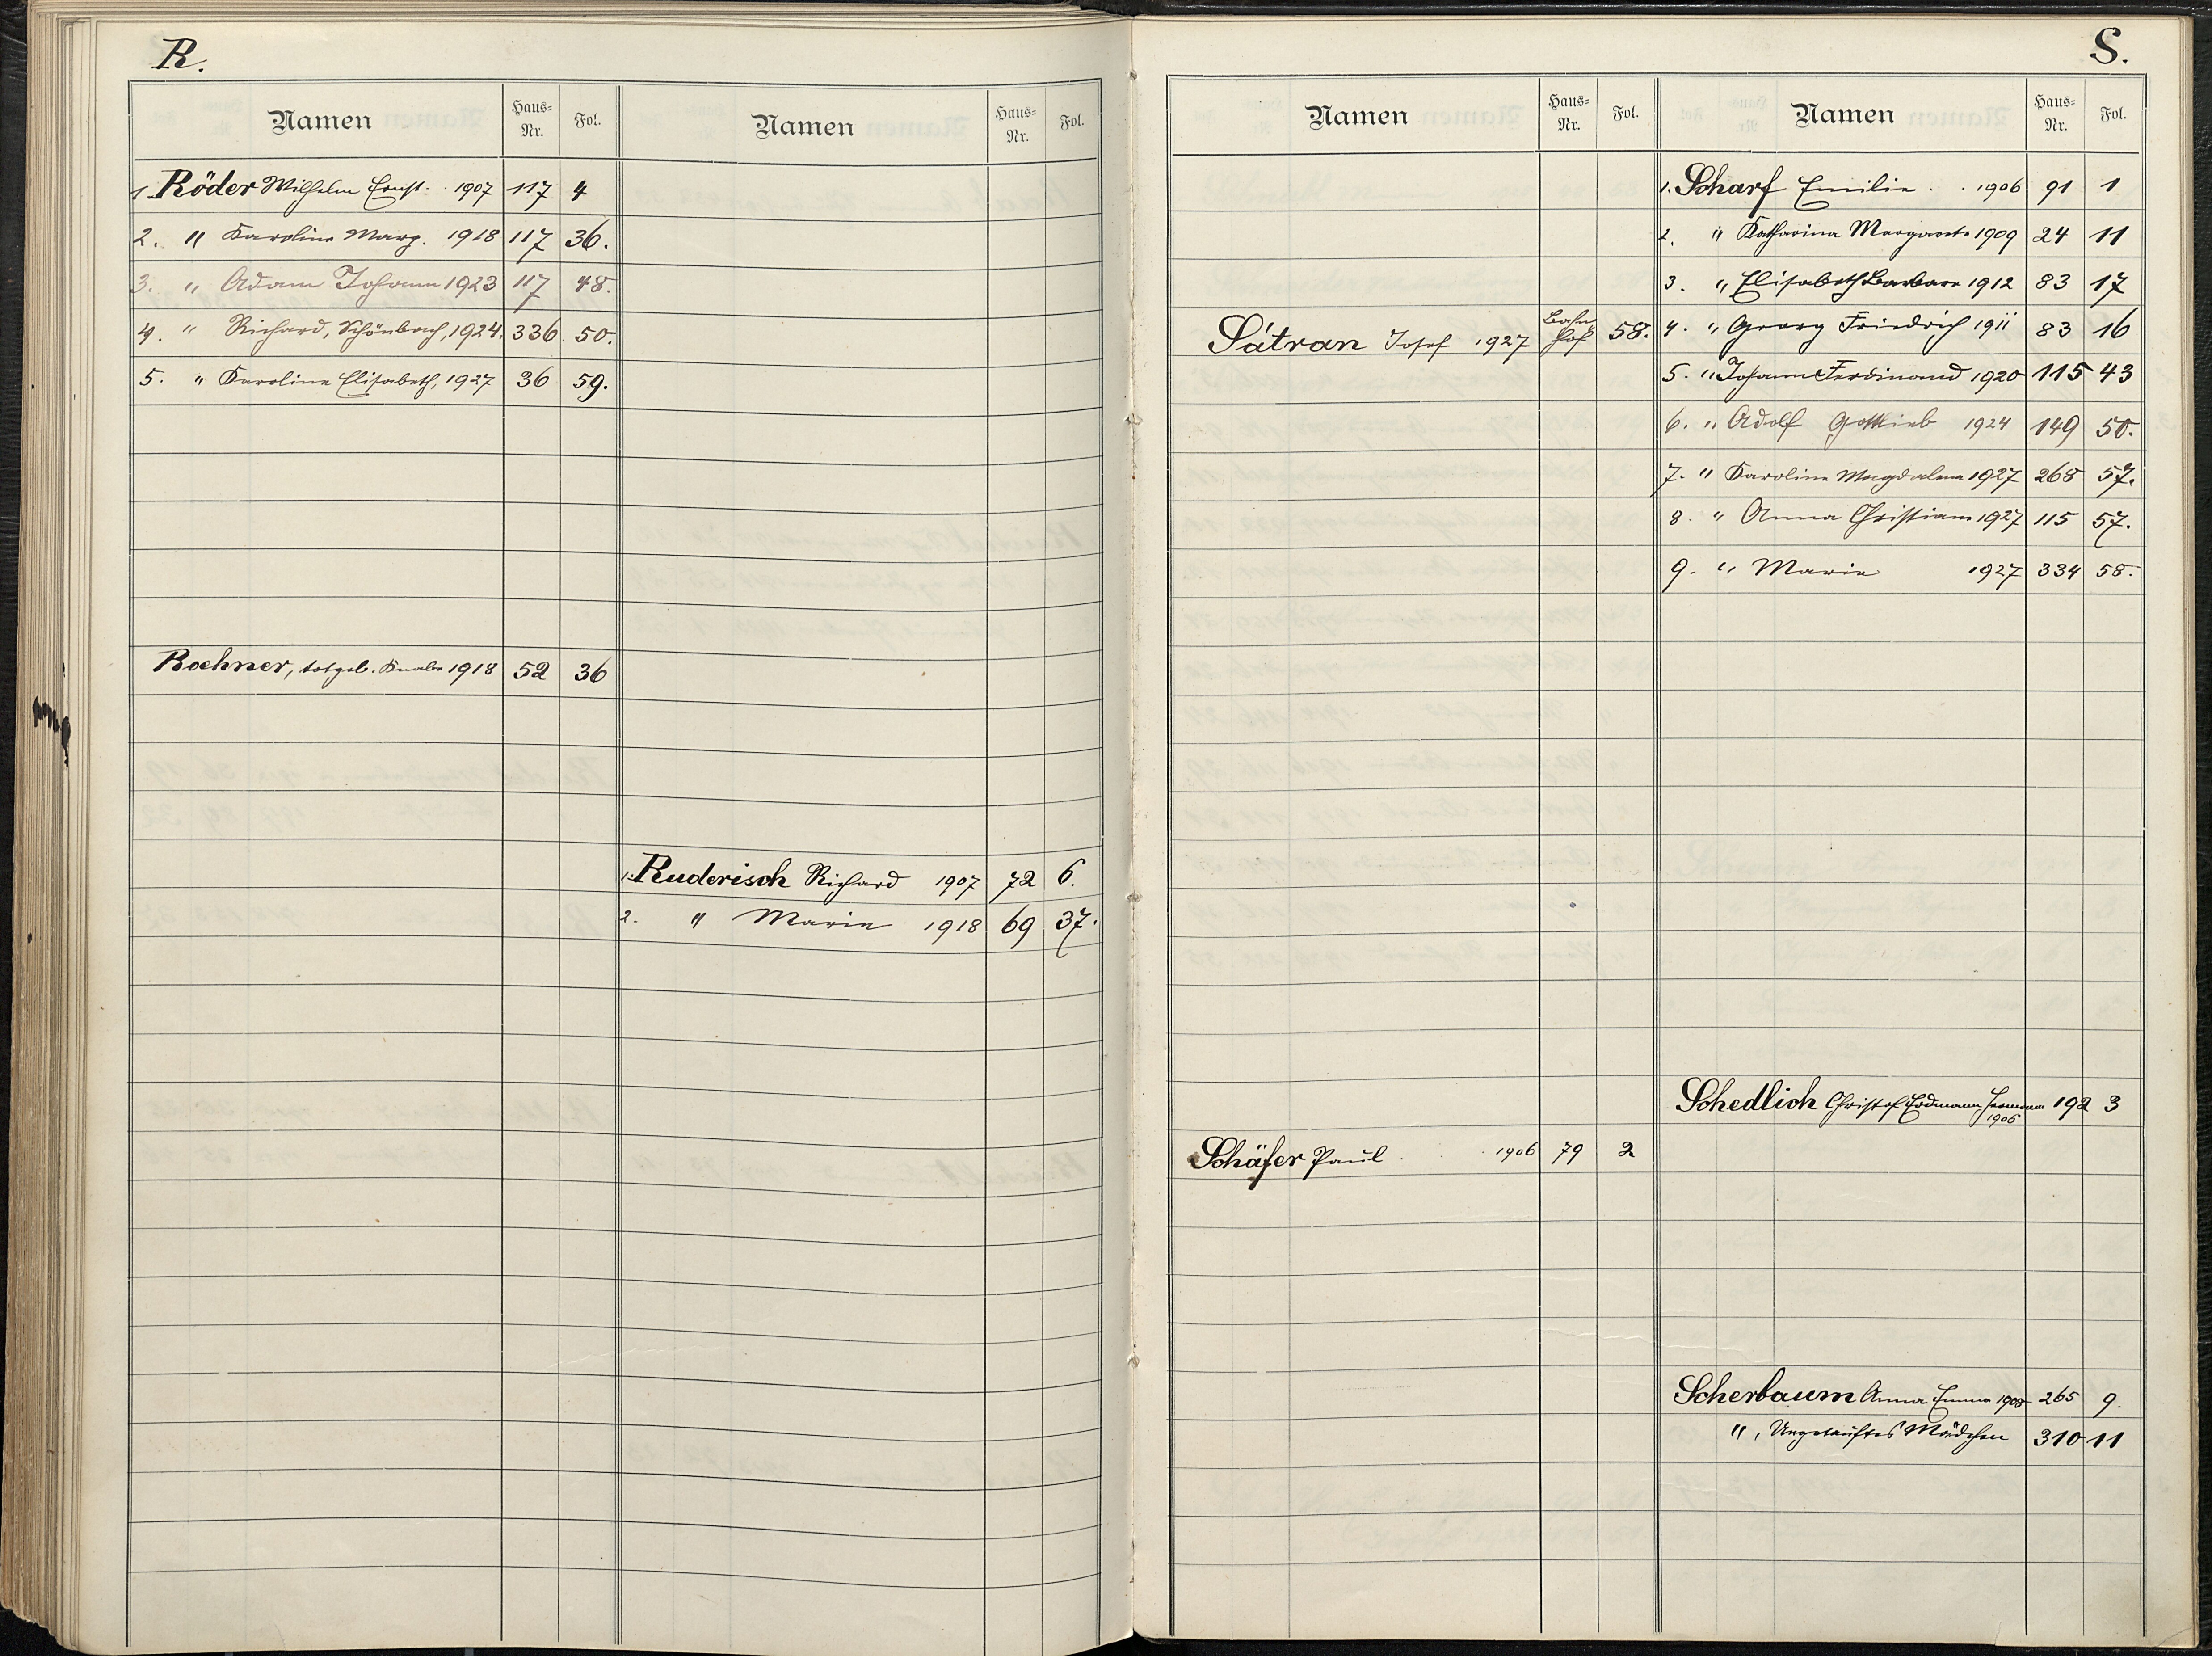 R.
Namen Haus-Nr. Fol. Namen Haus-Nr. Fol.
1. Röder Wilhelm Ernst . . 1907 117 4
2. " Karoline Marg. 1918 117 36.
3. " Adam Johann 1923 117 48.
4. " Richard, Schönbach, 1924. 336 50.
5. " Karoline Elisabeth, 1927 36 59.
Rochner, totgeb. Knabe 1918 52 36
1. Ruderisch Richard 1907 72 6.
2. " Marie 1918 69 37.
S.
Namen Haus-Nr. Fol. Namen Haus-Nr. Fol.
Sátran Josef 1927 Bahnhof 58.
Schäfer Paul . . 1906 79 2
1. Scharf Emilie . . 1906 91 1
2. " Katharina Margarete 1909 24 11
3. " Elisabeth Barbara 1912 83 17
4. " Georg Friedrich 1911 83 16
5. " Johann Ferdinand 1920 115 43
6. " Adolf Gottlieb 1924 149 50.
7. " Karoline Magdalena 1927 268 57.
8. " Anna Christiane 1927 115 57.
9. " Marie 1927 334 58.
Schedlich Christof Erdmann Hermann 1906 192 3
Scherbaum Anna Emma 1908 265 9.
" , Ungetauftes Mädchen 310 11